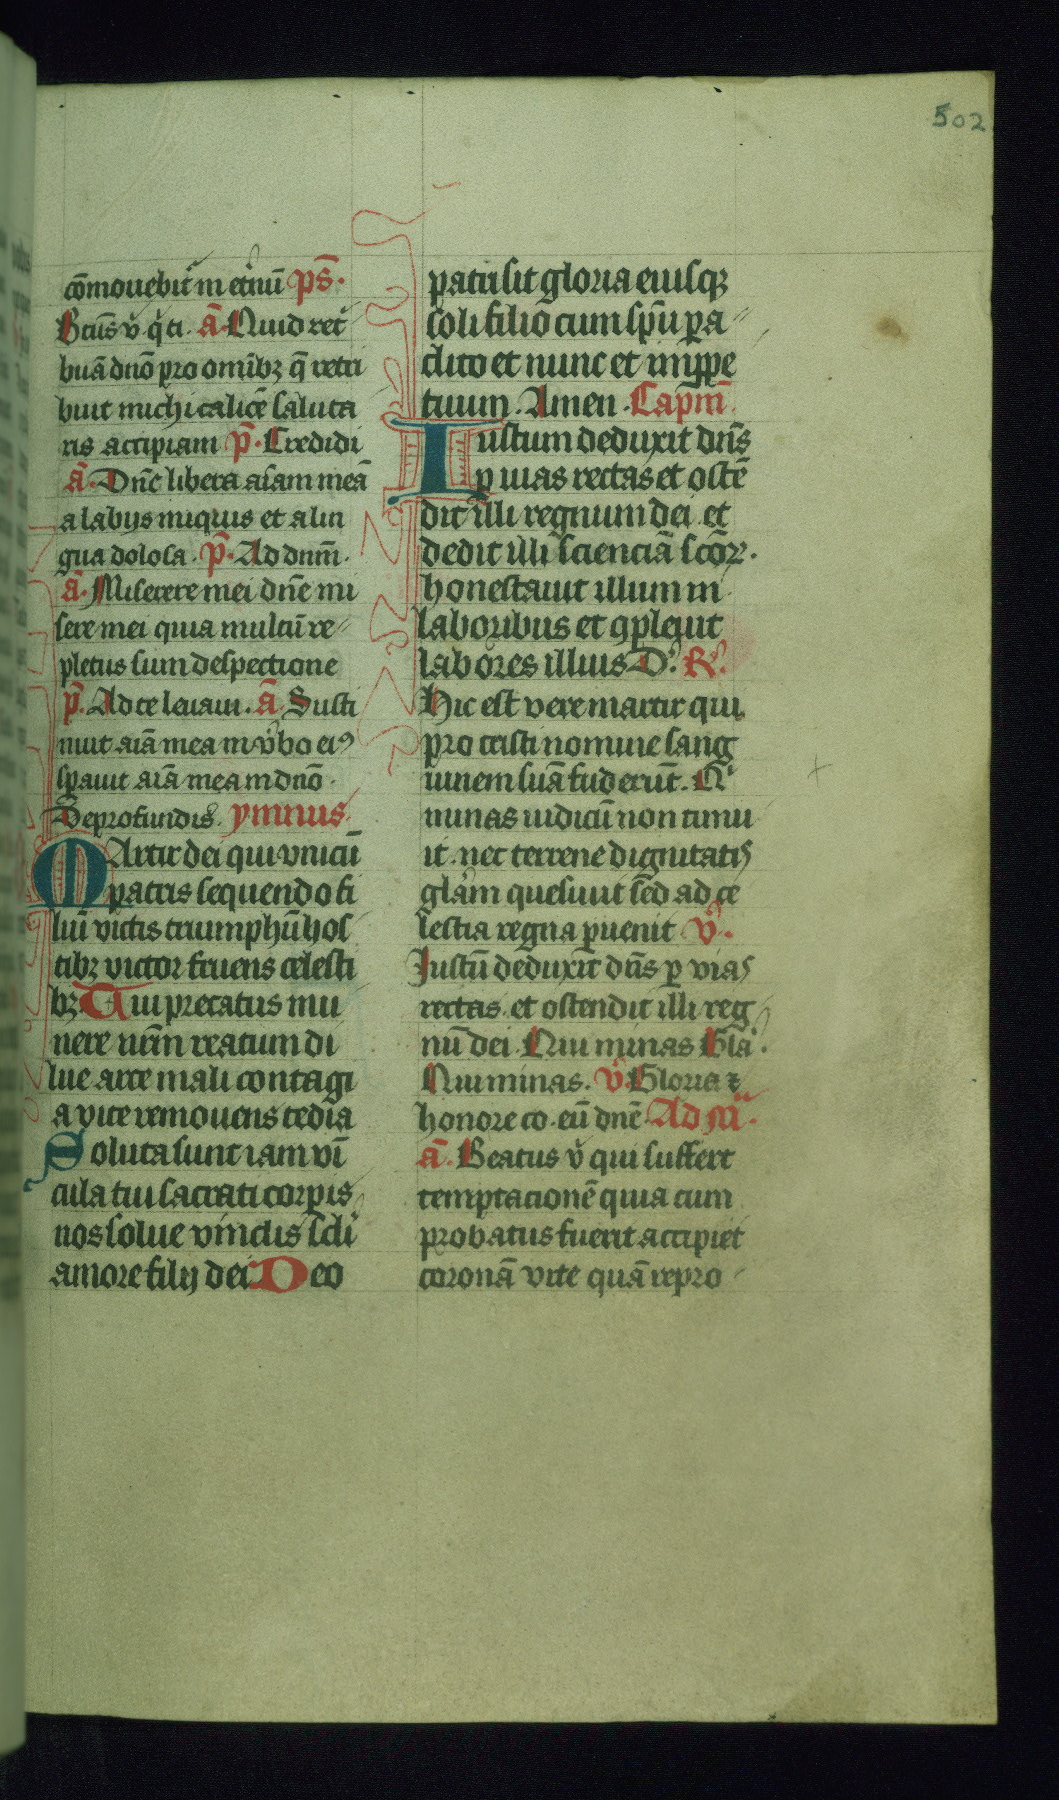 502
cōmouebit᷑ in et᷑nū ps̄.
Bctus v̓ q̓ ti. ā Quid ret᷑
buā dnō pro omībꝫ q̄ retri
buit michi calicē saluta
ris accipiam p̄. Credidi
ā. Dnē libera aīam meā
a labijs iniquis et a lin
gua dolosa. p̄. Ad dnm̄.
ā. Miserere mei dnē mi
sere mei quia multū re
pletus sum despectione
p̄. Ad te leuaui. ā. Susti
nuit aīa mea in v̓bo eiꝰ
sꝑauit aīa mea in dnō.
De profundis. ymnus
Martir dei qui vnicū
patris sequendo fi
liū victis triumphū hos
tibꝫ victor fruens celesti
bꝫ Tui precatus mu
nere nr̄m reatum di
lue arce mali contagi
a vite remouens tedia
Soluta sunt iam vī
cula tui sacrati corꝑis
nos solue vinclis scl̓i
amore filij dei Deo
patri sit gloria eiusqꝫ
soli filio cum sp̄u ꝑa
clito et nunc et in ꝑpe
tuum. Amen. Capm̄
Iustum deduxit dn̄s
ꝑ vias rectas et ostē
dit illi regnum dei et
dedit illi scienciā scōꝝ.
honestauit illum in
laboribus et ꝯpleuit
labores illius D. R.
Hic est vere martir qui
pro cristi nomine sang
uinem suā fuderūt. Q̇
minas iudicū non timu
it. nec terrene dignitatis
glam̄ quesiuit sed ad ce
lestia regna ꝑuenit v̓.
Iustū deduxit dn̄s ꝑ vias
rectas. et ostendit illi reg
nū dei. Qui minas Gla.
Qui minas. v̓. Gloria ⁊
honore co. eū dnē. Ad M̄.
ā. Beatus v̓ qui suffert
temptacionē quia cum
probatus fuerit accipiet
coronā vite quā repro